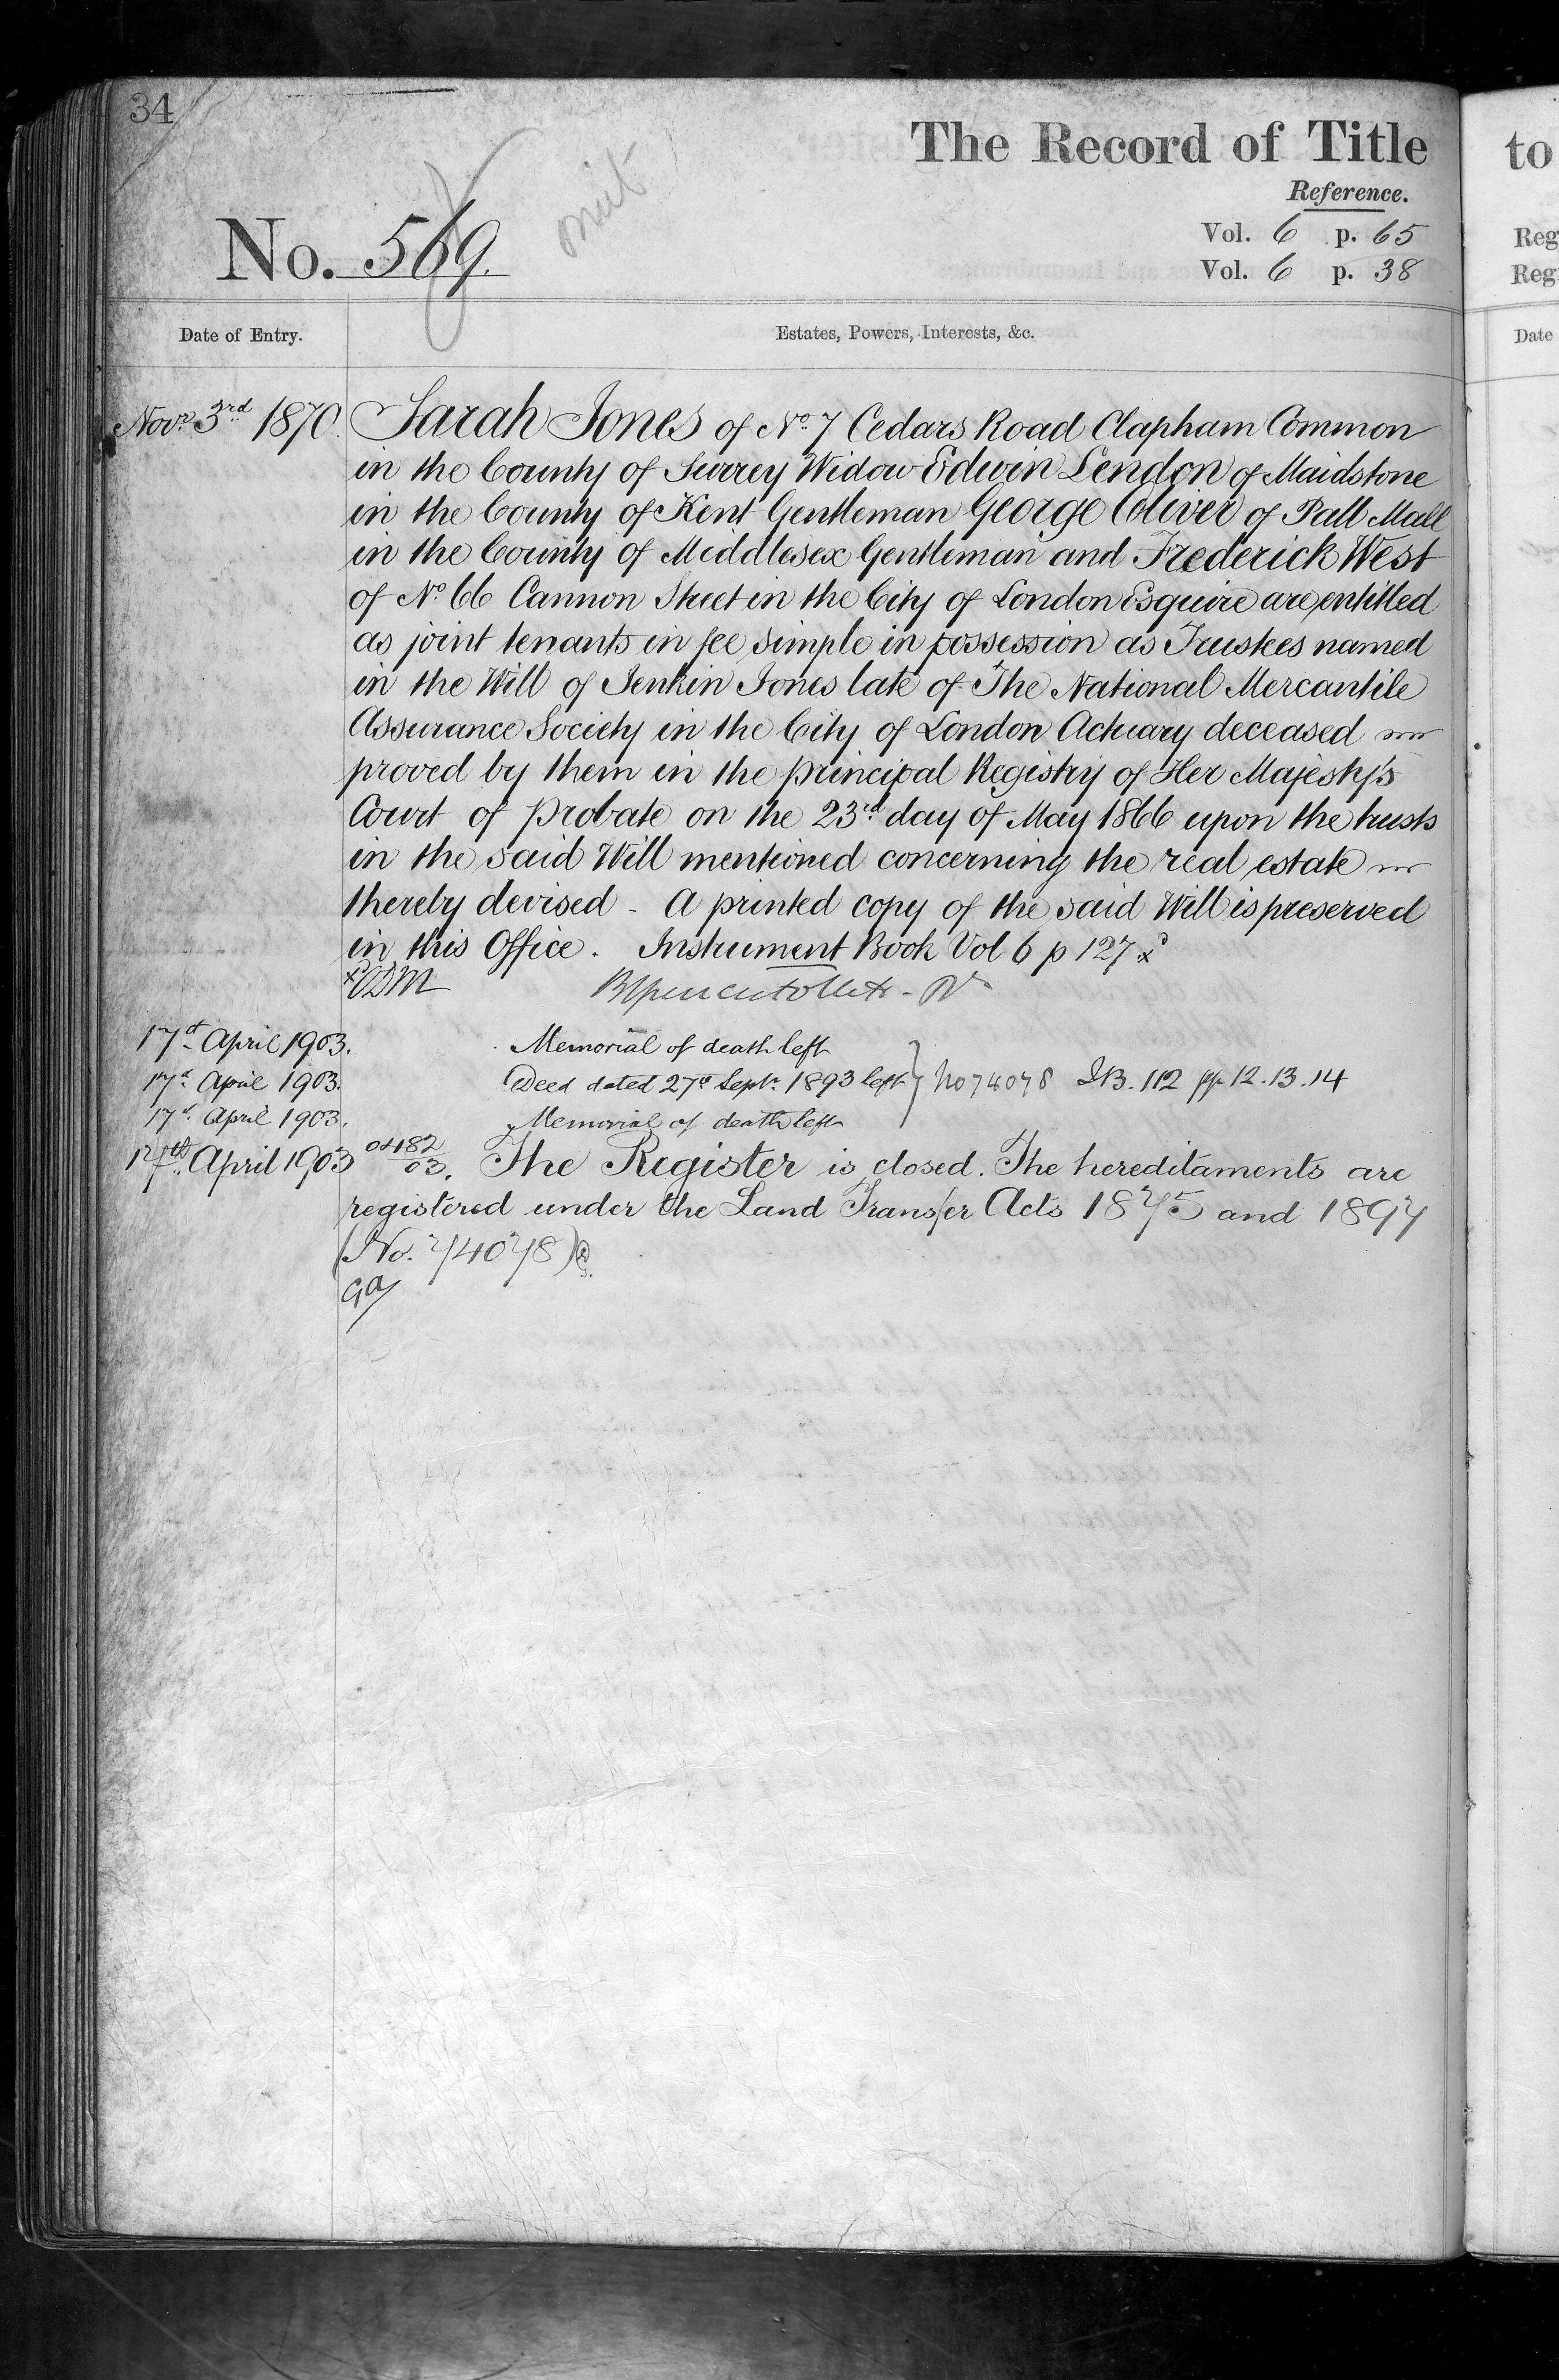 34
The Record of Title
Reference.
Vol. 6 p. 65
Vol. 6 p. 38
No. 569.
omit
Date of Entry.
Estates, Powers, Interests, &c.
Novr. 3rd 1870. Sarah Jones of No. 7 Cedars Road Clapham Common
in the County of Surrey Widow Edwin Lendon of Maidstone
in the County of Kent Gentleman George Oliver of Pall Mall
in the County of Middlesex Gentleman and Frederick West
of No. 66 Cannon Street in the City of London Esquire are entitled
as joint tenants in fee simple in possession as Trustees named
in the Will of Jenkin Jones late of The National Mercantile
Assurance Society in the City of London Actuary deceased
proved by them in the principal Registry of Her Majesty's
Court of Probate on the 23rd day of May 1866 upon the trusts
in the said Will mentioned concerning the real estate
thereby devised - A printed copy of the said Will is preserved
in this Office. Instrument Book Vol 6 p 127
17th April 1903. Memorial of death left
17th April 1903. Deed dated 27th Septr. 1893 left } No 74078 I.B. 112 pp 12.13.14
17th April 1903. Memorial of death left
17th April 1903 04182/03. The Register is closed. The hereditaments are
registered under the Land Transfer Acts 1875 and 1897
(No. 74078)
to
Reg
Reg
Date